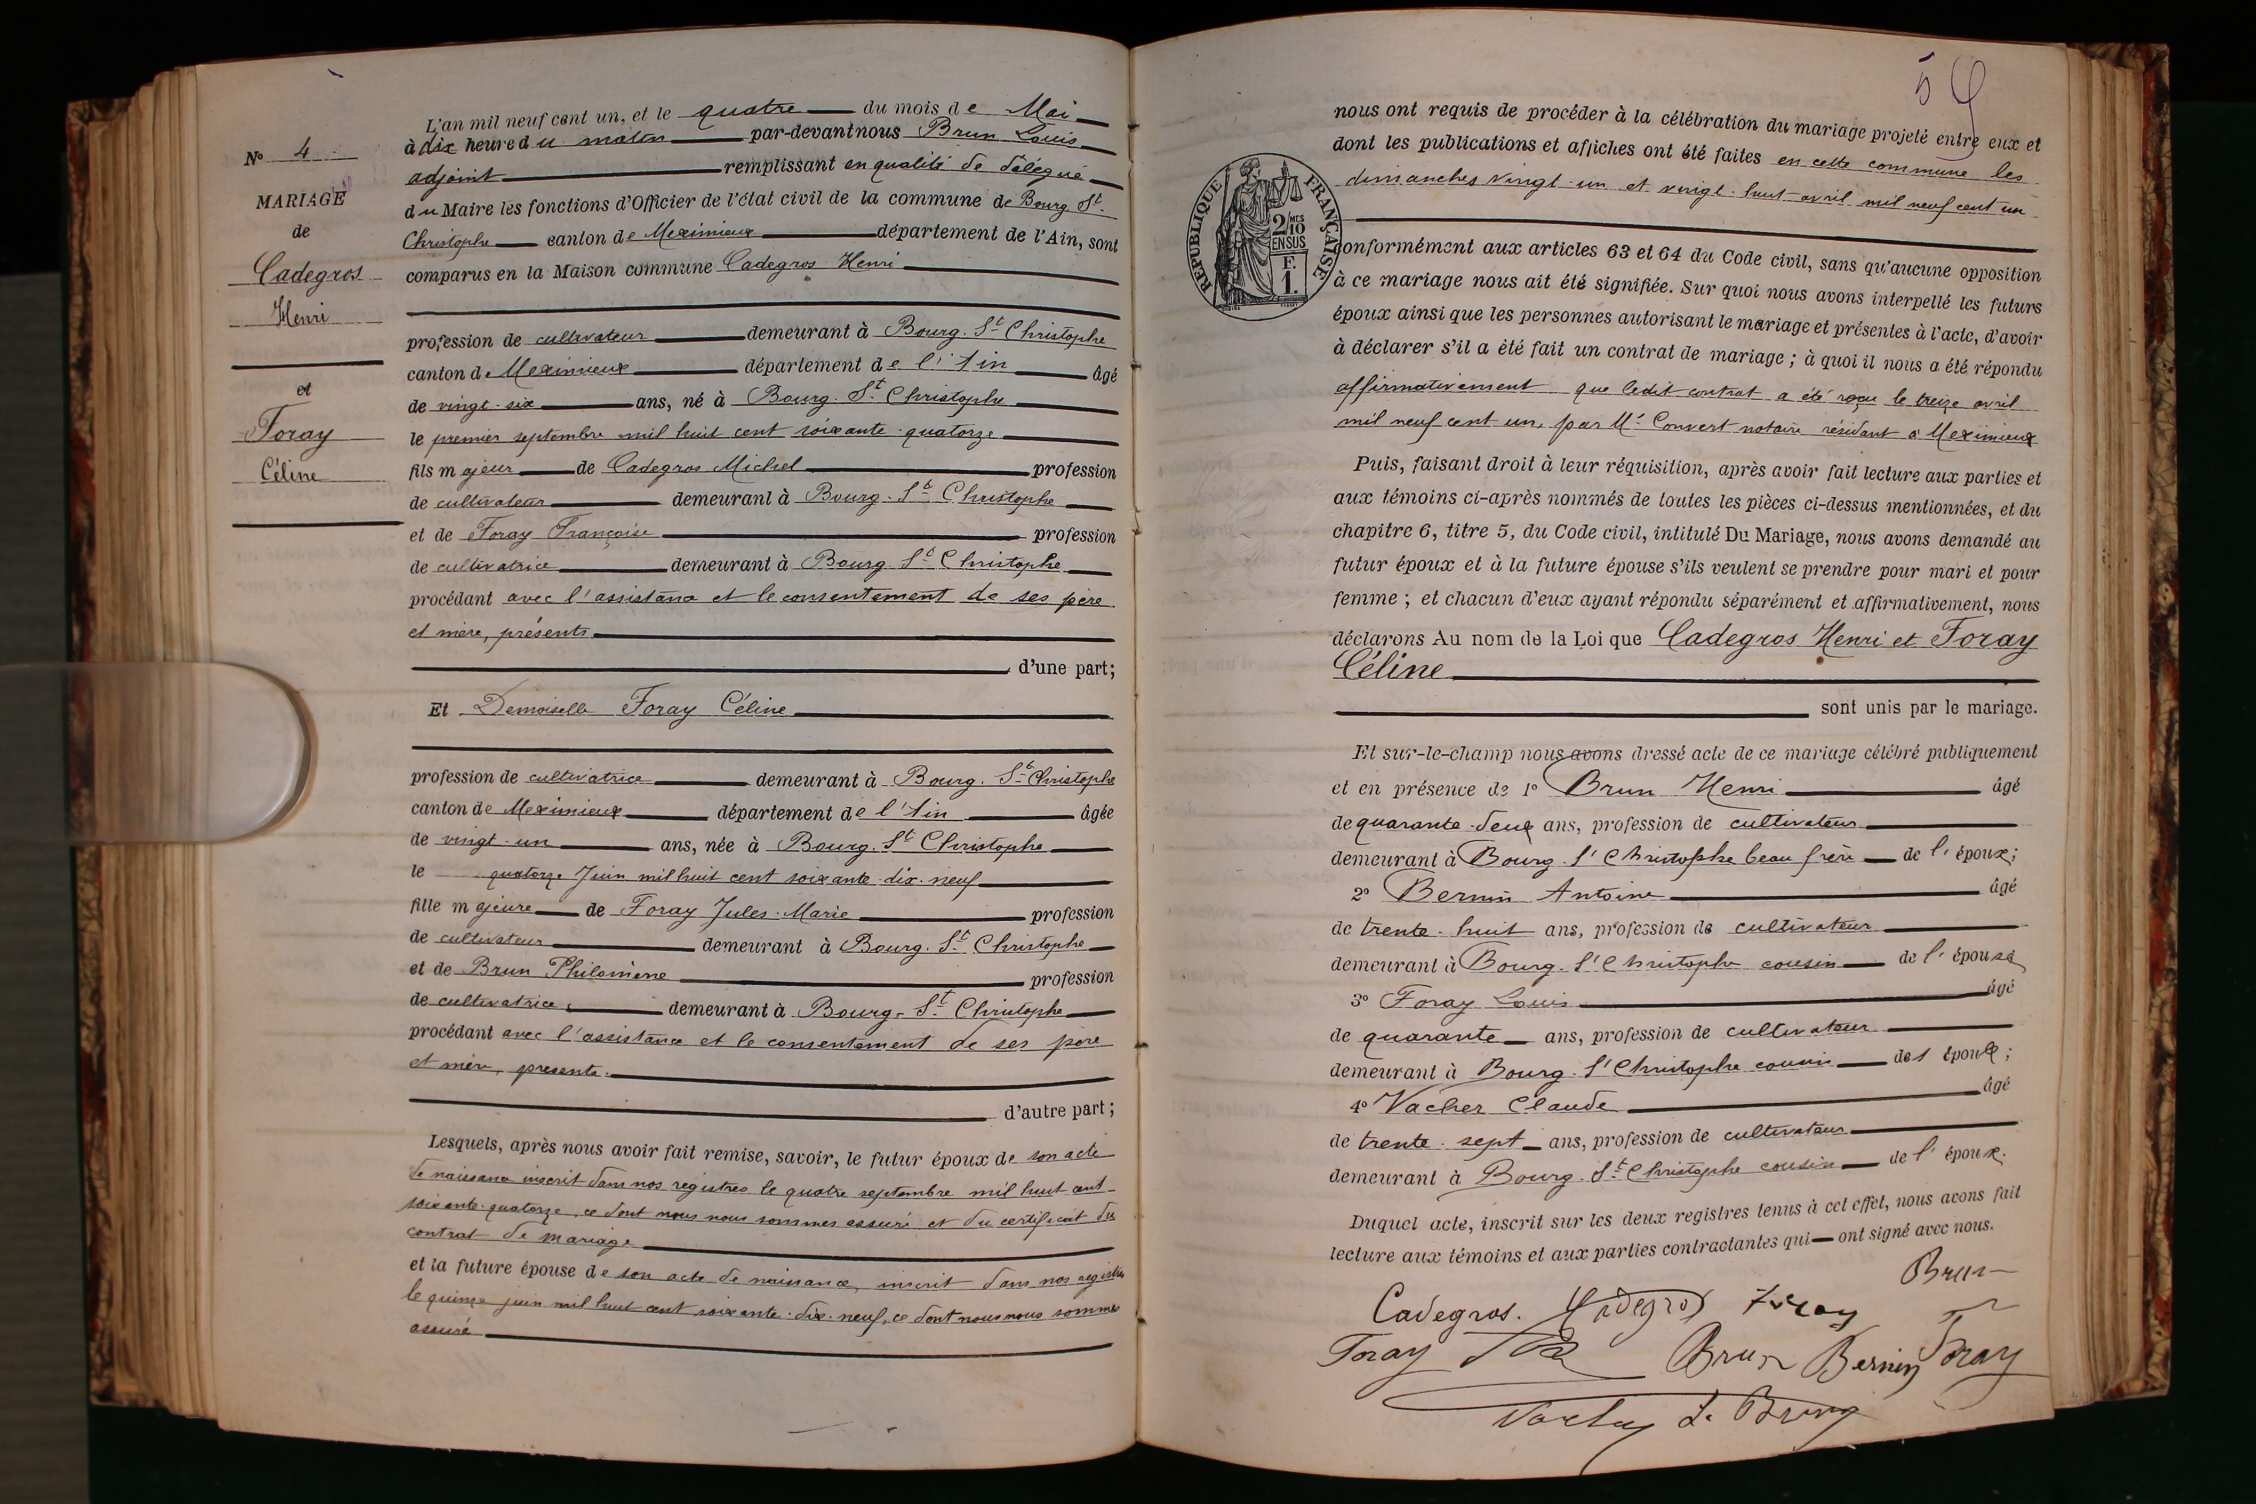 N° 4
MARIAGE
de
Cadegros
Henri
et
Foray
Céline
L'an mil neuf cent un, et le quatre du mois de Mai
à dix heure du matin par-devant nous Brun Louis
adjoint remplissant en qualité de délégué
du Maire les fonctions d'Officier de l'état civil de la commune de Bourg St.
Christophe canton de Meximieux département de l'Ain, sont
comparus en la Maison commune Cadegros Henri
profession de cultivateur demeurant à Bourg-St Christophe
canton de Meximieux département de l'Ain âgé
de vingt-six ans, né à Bourg-St Christophe
le premier septembre mil huit cent soixante-quatorze
fils majeur de Cadegros Michel profession
de cultivateur demeurant à Bourg-St Christophe
et de Foray Françoise profession
de cultivatrice demeurant à Bourg-St Christophe
procédant avec l'assistance et le consentement de ses père
et mère, présents
d'une part;
Et Demoiselle Foray Céline
profession de cultivatrice demeurant à Bourg-St Christophe
canton de Meximieux département de l'Ain âgée
de vingt-un ans, née à Bourg-St Christophe
le quatorze Juin mil huit cent soixante-dix-neuf
fille majeure de Foray Jules-Marie profession
de cultivateur demeurant à Bourg-St Christophe
et de Brun Philomène profession
de cultivatrice demeurant à Bourg-St Christophe
procédant avec l'assistance et le consentement de ses père
et mère, présents.
d'autre part;
Lesquels, après nous avoir fait remise, savoir, le futur époux de son acte
de naissance inscrit dans nos registres le quatre septembre mil huit cent
soixante-quatorze, ce dont nous nous sommes assuré et du certificat du
contrat de mariage
et la future épouse de son acte de naissance, inscrit dans nos registres
le quinze juin mil huit cent soixante-dix-neuf, ce dont nous nous sommes
assuré
59
nous ont requis de procéder à la célébration du mariage projeté entre eux et
dont les publications et affiches ont été faites en cette commune les
dimanches vingt-un et vingt-huit avril mil neuf cent un
RÉPUBLIQUE FRANÇAISE
2/10 MES
EN SUS
F.
1.
conformément aux articles 63 et 64 du Code civil, sans qu'aucune opposition
à ce mariage nous ait été signifiée. Sur quoi nous avons interpellé les futurs
époux ainsi que les personnes autorisant le mariage et présentes à l'acte, d'avoir
à déclarer s'il a été fait un contrat de mariage ; à quoi il nous a été répondu
affirmativement que ledit contrat a été reçu le treize avril
mil neuf cent un, par Me Convert notaire résidant à Meximieux
Puis, faisant droit à leur réquisition, après avoir fait lecture aux parties et
aux témoins ci-après nommés de toutes les pièces ci-dessus mentionnées, et du
chapitre 6, titre 5, du Code civil, intitulé Du Mariage, nous avons demandé au
futur époux et à la future épouse s'ils veulent se prendre pour mari et pour
femme ; et chacun d'eux ayant répondu séparément et affirmativement, nous
déclarons Au nom de la Loi que Cadegros Henri et Foray
Céline
sont unis par le mariage.
Et sur-le-champ nous avons dressé acte de ce mariage célébré publiquement
et en présence de 1° Brun Henri âgé
de quarante-deux ans, profession de cultivateur
demeurant à Bourg-St Christophe beau frère de l'époux;
2° Bernin Antoine âgé
de trente-huit ans, profession de cultivateur
demeurant à Bourg-St Christophe cousin de l'épouse
3° Foray Louis âgé
de quarante ans, profession de cultivateur
demeurant à Bourg-St Christophe cousin des époux;
4° Vacher Claude âgé
de trente-sept ans, profession de cultivateur
demeurant à Bourg-St Christophe cousin de l'époux.
Duquel acte, inscrit sur les deux registres tenus à cet effet, nous avons fait
lecture aux témoins et aux parties contractantes qui ont signé avec nous.
Brun
Cadegros. Cadegros Foray
Foray Brun Bernin Foray
Vacher L. Brun